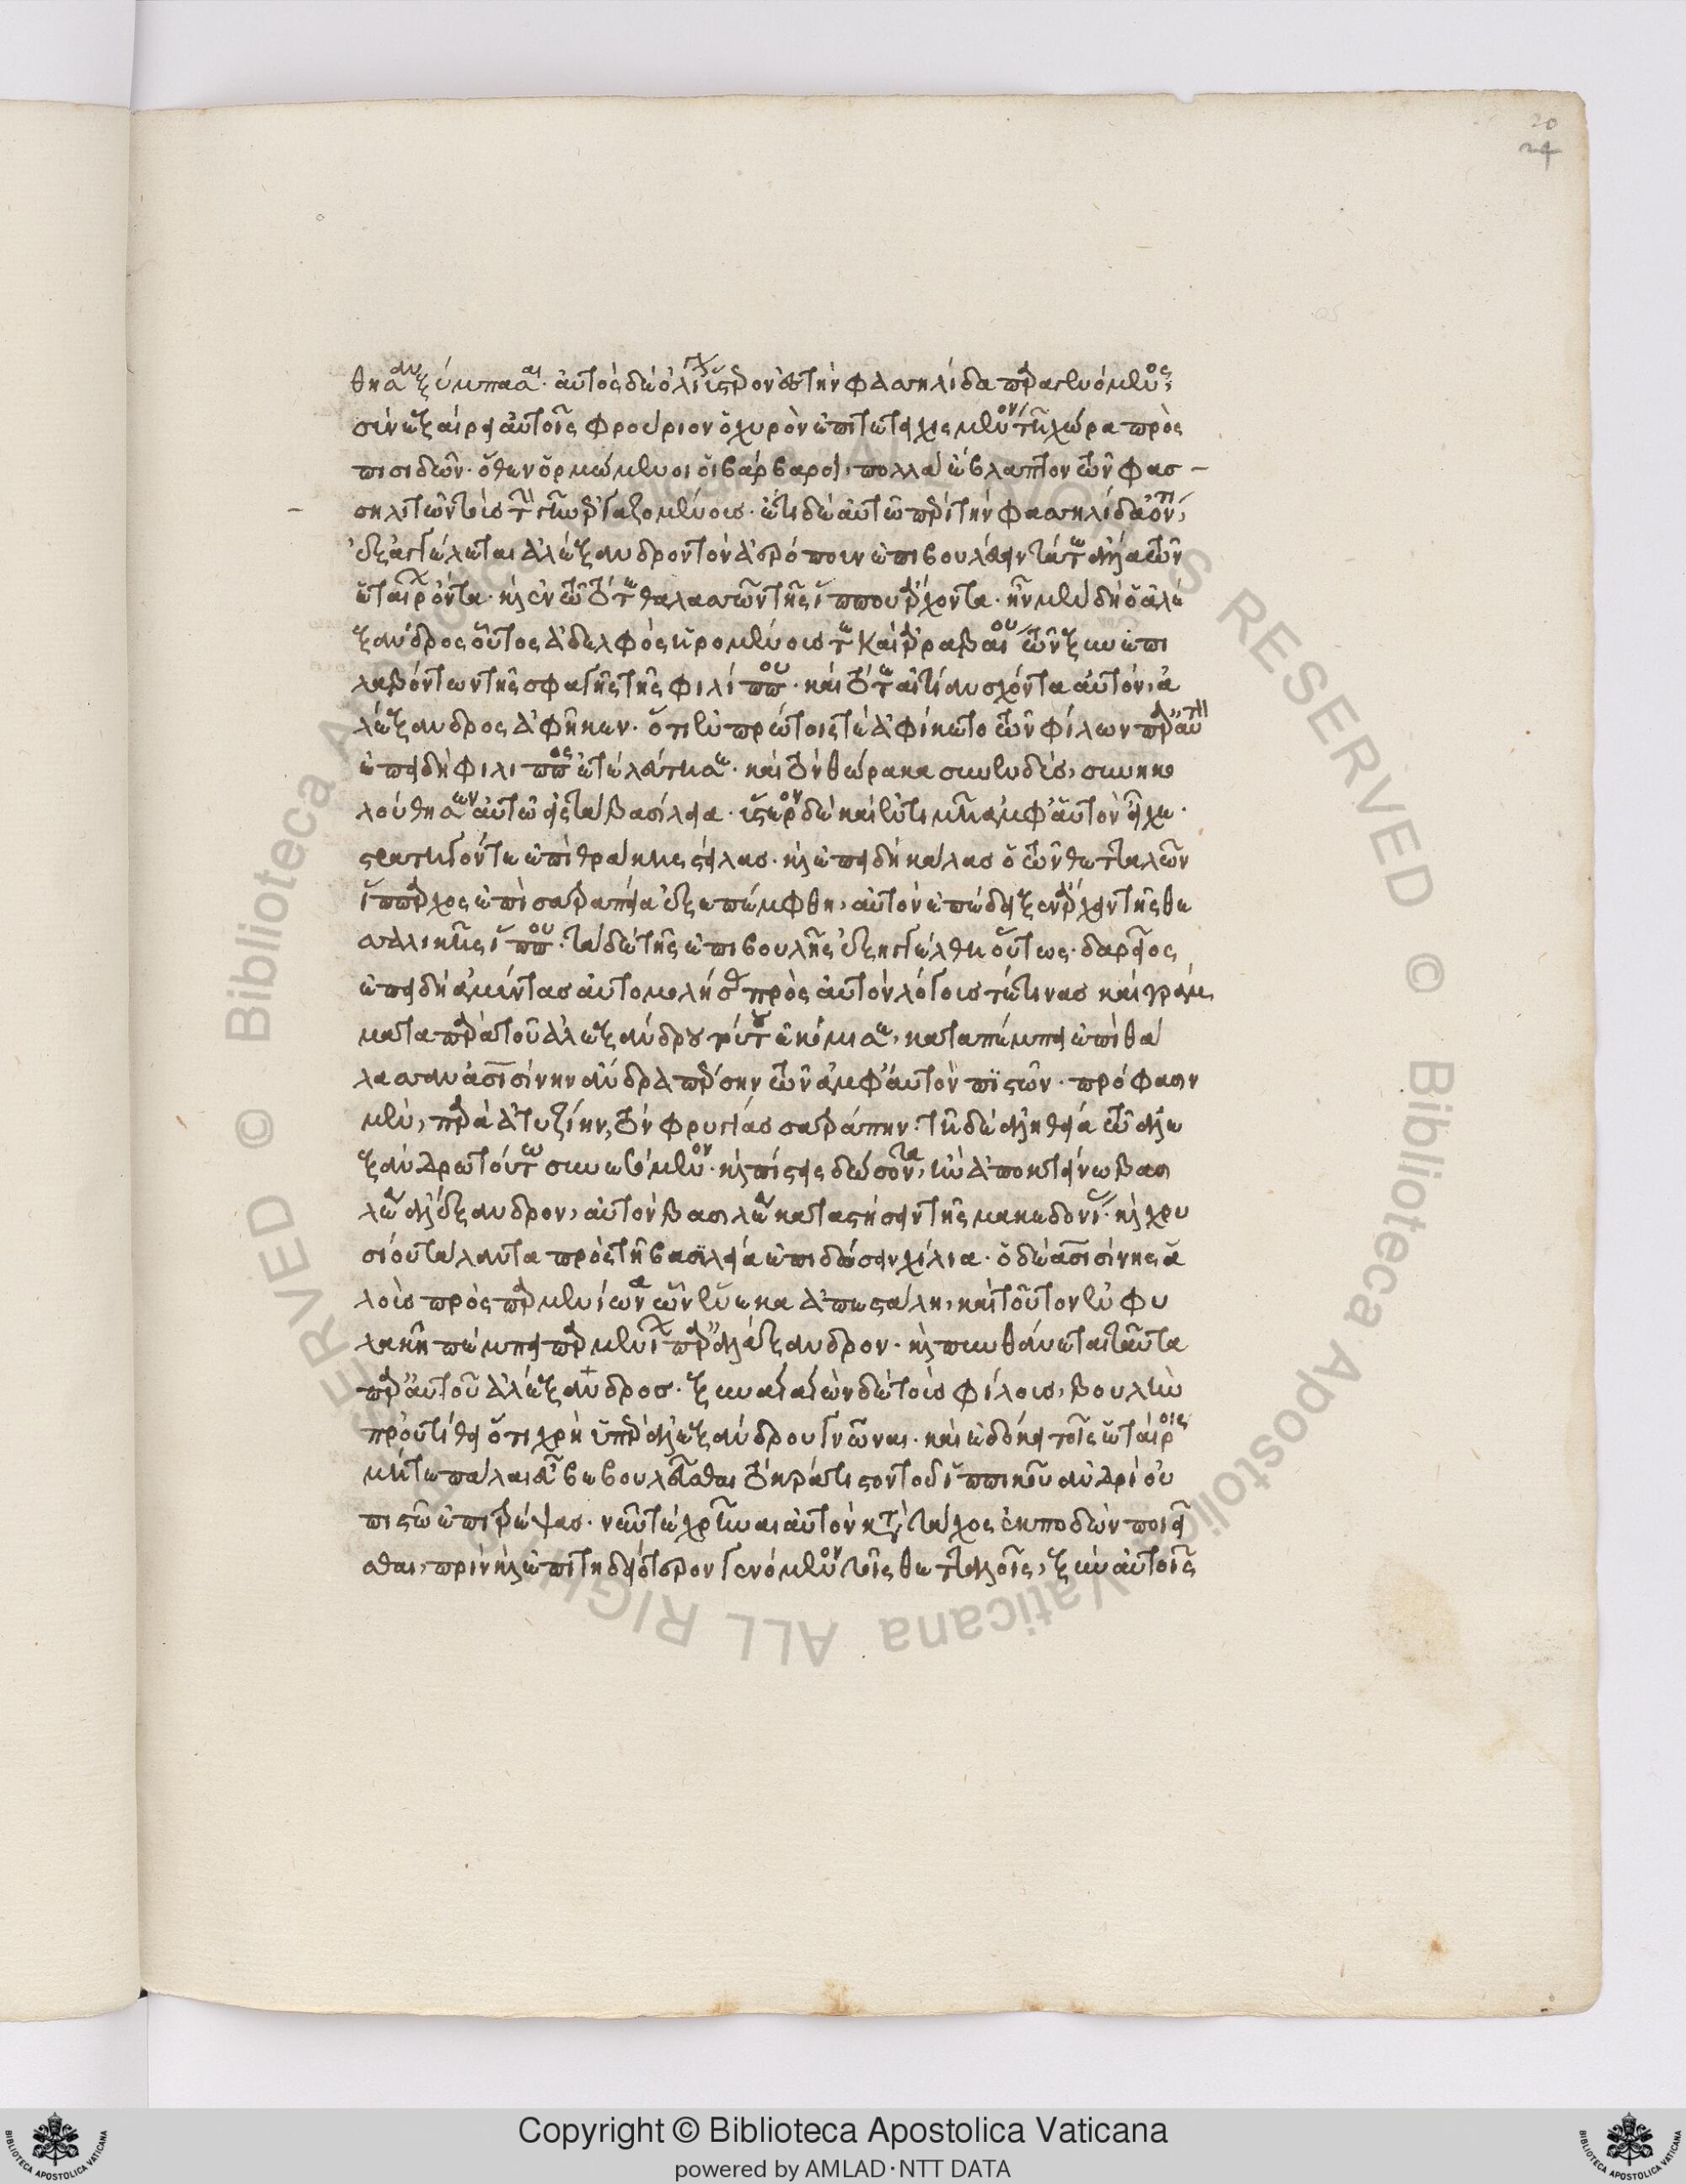 θησαν ξύμπασαι· αὐτὸς δὲ ὀλίγον ὕστερον ἐς τὴν φασηλίδα παραγενόμενος,
συνεξαίρει αὐτοῖς φρούριον ὀχυρὸν ἐπιτετειχισμένον τῇ χώρα πρὸς
πισιδῶν· ὅθεν ὁρμώμενοι οἱ βάρβαροι, πολλὰ ἔβλαπτον τῶν φασ
σηλιτῶν τοὺς τὴν γῆν ἐργαζομένους· ἔτι δὲ αὐτῶ περὶ τὴν φασηλίδα ὄντι,
ἐξαγγέλεται ἀλέξανδρον τὸν ἀερόπου ἐπιβουλεύειν τά τε ἄλλα τῶν
ἑταίρων ὄντα· καὶ ἐν τῶ τότε θεσσαλῶν τῆς ἵππου ἄρχοντα· ἦν μὲν δὴ ὁ ἀλέ
ξανδρος οὗτος ἀδελφὸς ἡρομένους τε καὶ ἀρραβαίου τῶν ξυνεπι
λαβόντων τῆς σφαγῆς τῆς φιλίππου· καὶ τότε αἰτίαν σχόντα αὐτὸν, ἀ
λέξανδρος ἀφῆκεν· ὅτι ἐν πρώτοις τὲ ἀφίκετο τῶν φίλων παρ' αὐτὸν
ἐπειδὴ φίλιππος ἐτελεύτησε· καὶ τὸν θώρακα συνενδὺς, συνηκο
λούθησεν αὐτῶ εἰς τὰ βασίλεια· ὕστερον δὲ καὶ ἐν τιμῆ ἀμφ' αὑτὸν εἶχε·
στρατηγόν τε ἐπὶ θράκης στείλας· καὶ ἐπειδὴ κάλας ὁ τῶν θετταλῶν
ἵππαρχος ἐπὶ σατραπεία ἐξεπέμφθη, αὐτὸν ἐπέδειξεν ἄρχειν τῆς θε
σσαλικῆς ἵππου· τὰ δὲ τῆς ἐπιβουλῆς ἐξηγγέλθη οὕτως· δαρεῖος
ἐπειδὴ ἀμύντας αὐτομολήσας πρὸς αὐτὸν λόγους τέ τινας καὶ γράμ
ματα παρὰ τοῦ ἀλεξάνδρου τούτου ἐκόμισε, καταπέμπει ἐπὶ θά
λασσαν ἀσισίνην ἄνδρα πέρσην τῶν ἀμφ' αὐτὸν πιστῶν· πρόφασιν
μὲν, παρὰ ἀτυζίην, τὸν φρυγίας σατράπην· τῆ δὲ ἀληθεία τῶ ἀλε
ξάνδρω τούτω συνεσόμενον· καὶ πίστεις δώσοντα, εἰ ἀποκτείνει βασι
λέα ἀλέξανδρον, αὐτὸν βασιλέα καταστήσειν τῆς μακεδονίας· καὶ χρυ
σίου τάλαντα πρὸς τῆ βασιλεία ἐπιδώσειν χίλια· ὁ δὲ ἀσισίνης ἁ
λοὺς πρὸς παρμενίωνος ὧν ἕνεκα ἀπεστάλη, καὶ τοῦτον ἐν φυ
λακῆ πέμπει παρμενίων παρ' ἀλέξανδρον· καὶ πυνθάνεται ταῦτα
παρ' αὐτοῦ ἀλέξανδρος· ξυναγαγὼν δὲ τοὺς φίλους, βουλὴν
προὐτίθει ὅτι χρὴ ὑπὲρ ἀλεξάνδρου γνῶναι· καὶ ἐδόκει τοῖς ἑταίροις
μήτε πάλαι εὖ βεβουλεῦσθαι τὸ κράτιστον τοῦ ἱππικοῦ ἀνδρὶ οὐ
πιστῶ ἐπιτρέψας· νῦν τε χρῆναι αὐτὸν κατὰ τάχος ἐκποδὼν ποιεῖ
σθαι, πρὶν καὶ ἐπιτηδειότερον γενόμενον τοῖς θετταλοῖς, ξὺν αὐτοῖς
Copyright © Biblioteca Apostolica Vaticana
powered by AMLAD·NTT DATA